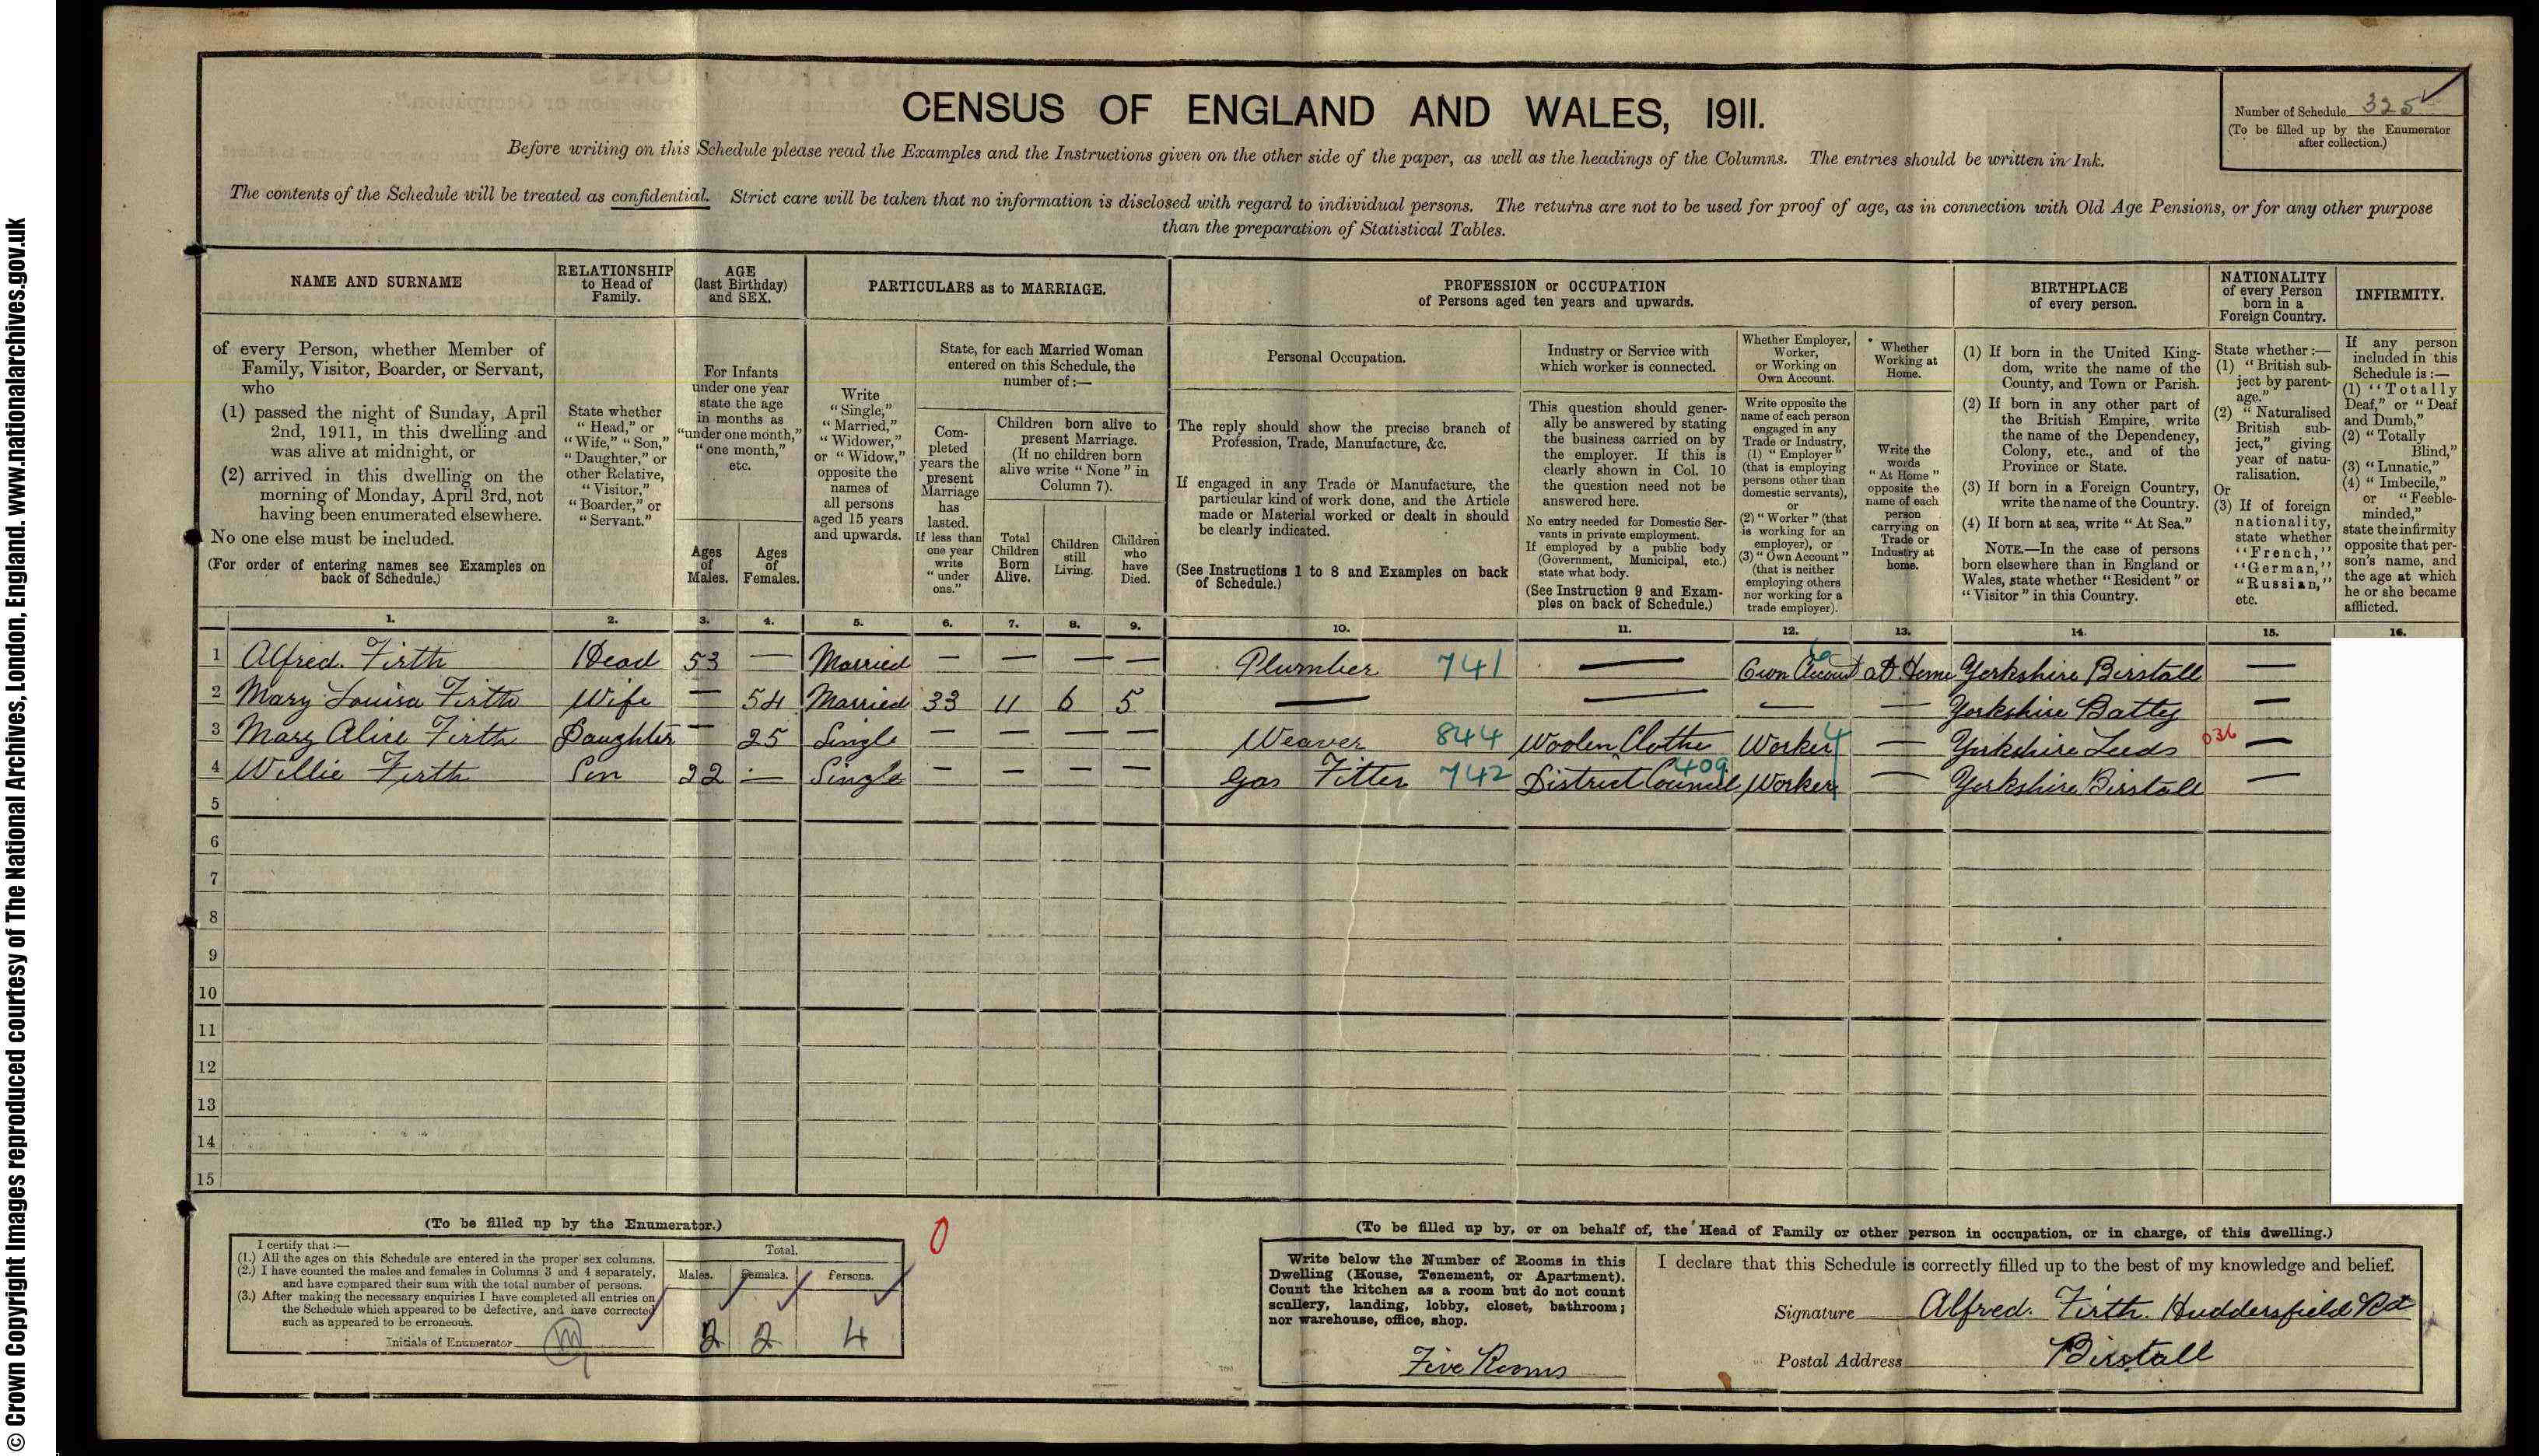 CENSUS OF ENGLAND AND WALES, 1911.
Number of Schedule 325
(To be filled up by the Enumerator
after collection.)
Before writing on this Schedule please read the Examples and the Instructions given on the other side of the paper, as well as the headings of the Columns. The entries should be written in Ink.
The contents of the Schedule will be treated as confidential. Strict care will be taken that no information is disclosed with regard to individual persons. The returns are not to be used for proof of age, as in connection with Old Age Pensions, or for any other purpose
than the preparation of Statistical Tables.
NAME AND SURNAME
of every Person, whether Member of
Family, Visitor, Boarder, or Servant,
who
(1) passed the night of Sunday, April
2nd, 1911, in this dwelling and
was alive at midnight, or
(2) arrived in this dwelling on the
morning of Monday, April 3rd, not
having been enumerated elsewhere.
No one else must be included.
(For order of entering names see Examples on
back of Schedule.)
RELATIONSHIP
to Head of
Family.
State whether
"Head," or
"Wife," "Son,"
"Daughter," or
other Relative,
"Visitor,"
"Boarder," or
"Servant."
AGE
(last Birthday)
and SEX.
For Infants
under one year
state the age
in months as
"under one month,"
"one month,"
etc.
Ages
of
Males.
Ages
of
Females.
PARTICULARS as to MARRIAGE.
Write
"Single,"
"Married,"
"Widower,"
or "Widow,"
opposite the
names of
all persons
aged 15 years
and upwards.
State, for each Married Woman
entered on this Schedule, the
number of :—
Com-
pleted
years the
present
Marriage
has
lasted.
If less than
one year
write
"under
one."
Children born alive to
present Marriage.
(If no children born
alive write "None" in
Column 7).
Total
Children
Born
Alive.
Children
still
Living.
Children
who
have
Died.
PROFESSION or OCCUPATION
of Persons aged ten years and upwards.
Personal Occupation.
The reply should show the precise branch of
Profession, Trade, Manufacture, &c.
If engaged in any Trade or Manufacture, the
particular kind of work done, and the Article
made or Material worked or dealt in should
be clearly indicated.
(See Instructions 1 to 8 and Examples on back
of Schedule.)
Industry or Service with
which worker is connected.
This question should gener-
ally be answered by stating
the business carried on by
the employer. If this is
clearly shown in Col. 10
the question need not be
answered here.
No entry needed for Domestic Ser-
vants in private employment.
If employed by a public body
(Government, Municipal, etc.)
state what body.
(See Instruction 9 and Exam-
ples on back of Schedule.)
Whether Employer,
Worker,
or Working on
Own Account.
Write opposite the
name of each person
engaged in any
Trade or Industry,
(1) "Employer"
(that is employing
persons other than
domestic servants),
or
(2) "Worker" (that
is working for an
employer), or
(3) "Own Account"
(that is neither
employing others
nor working for a
trade employer).
Whether
Working at
Home.
Write the
words
"At Home"
opposite the
name of each
person
carrying on
Trade or
Industry at
home.
BIRTHPLACE
of every person.
(1) If born in the United King-
dom, write the name of the
County, and Town or Parish.
(2) If born in any other part of
the British Empire, write
the name of the Dependency,
Colony, etc., and of the
Province or State.
(3) If born in a Foreign Country,
write the name of the Country.
(4) If born at sea, write "At Sea."
NOTE.—In the case of persons
born elsewhere than in England or
Wales, state whether "Resident" or
"Visitor" in this Country.
NATIONALITY
of every Person
born in a
Foreign Country.
State whether :—
(1) "British sub-
ject by parent-
age."
(2) "Naturalised
British sub-
ject," giving
year of natu-
ralisation.
Or
(3) If of foreign
nationality,
state whether
"French,"
"German,"
"Russian,"
etc.
INFIRMITY.
If any person
included in this
Schedule is :—
(1) "Totally
Deaf," or "Deaf
and Dumb,"
(2) "Totally
Blind,"
(3) "Lunatic,"
(4) "Imbecile,"
or "Feeble-
minded,"
state the infirmity
opposite that per-
son's name, and
the age at which
he or she became
afflicted.
1. 2. 3. 4. 5. 6. 7. 8. 9. 10. 11. 12. 13. 14. 15. 16.
1 Alfred. Firth Head 53 — Married — — — — Plumber 741 — Own Account 6 at Home Yorkshire Birstall —
2 Mary Louisa Firth Wife — 54 Married 33 11 6 5 — — — — Yorkshire Batley —
3 Mary Alice Firth Daughter — 25 Single — — — — Weaver 844 Woolen Clothe Worker 4 — Yorkshire Leeds 036 —
4 Willie Firth Son 22 — Single — — — — Gas Fitter 742 District Council 409 Worker — Yorkshire Birstall —
5
6
7
8
9
10
11
12
13
14
15
(To be filled up by the Enumerator.)
I certify that :—
(1.) All the ages on this Schedule are entered in the proper sex columns.
(2.) I have counted the males and females in Columns 3 and 4 separately,
and have compared their sum with the total number of persons.
(3.) After making the necessary enquiries I have completed all entries on
the Schedule which appeared to be defective, and have corrected
such as appeared to be erroneous.
Initials of Enumerator
Total.
Males. Females. Persons.
2 2 4
0
(To be filled up by, or on behalf of, the Head of Family or other person in occupation, or in charge, of this dwelling.)
Write below the Number of Rooms in this
Dwelling (House, Tenement, or Apartment).
Count the kitchen as a room but do not count
scullery, landing, lobby, closet, bathroom;
nor warehouse, office, shop.
Five Rooms
I declare that this Schedule is correctly filled up to the best of my knowledge and belief.
Signature Alfred. Firth. Huddersfield Rd
Postal Address Birstall
© Crown Copyright Images reproduced courtesy of The National Archives, London, England. www.nationalarchives.gov.uk